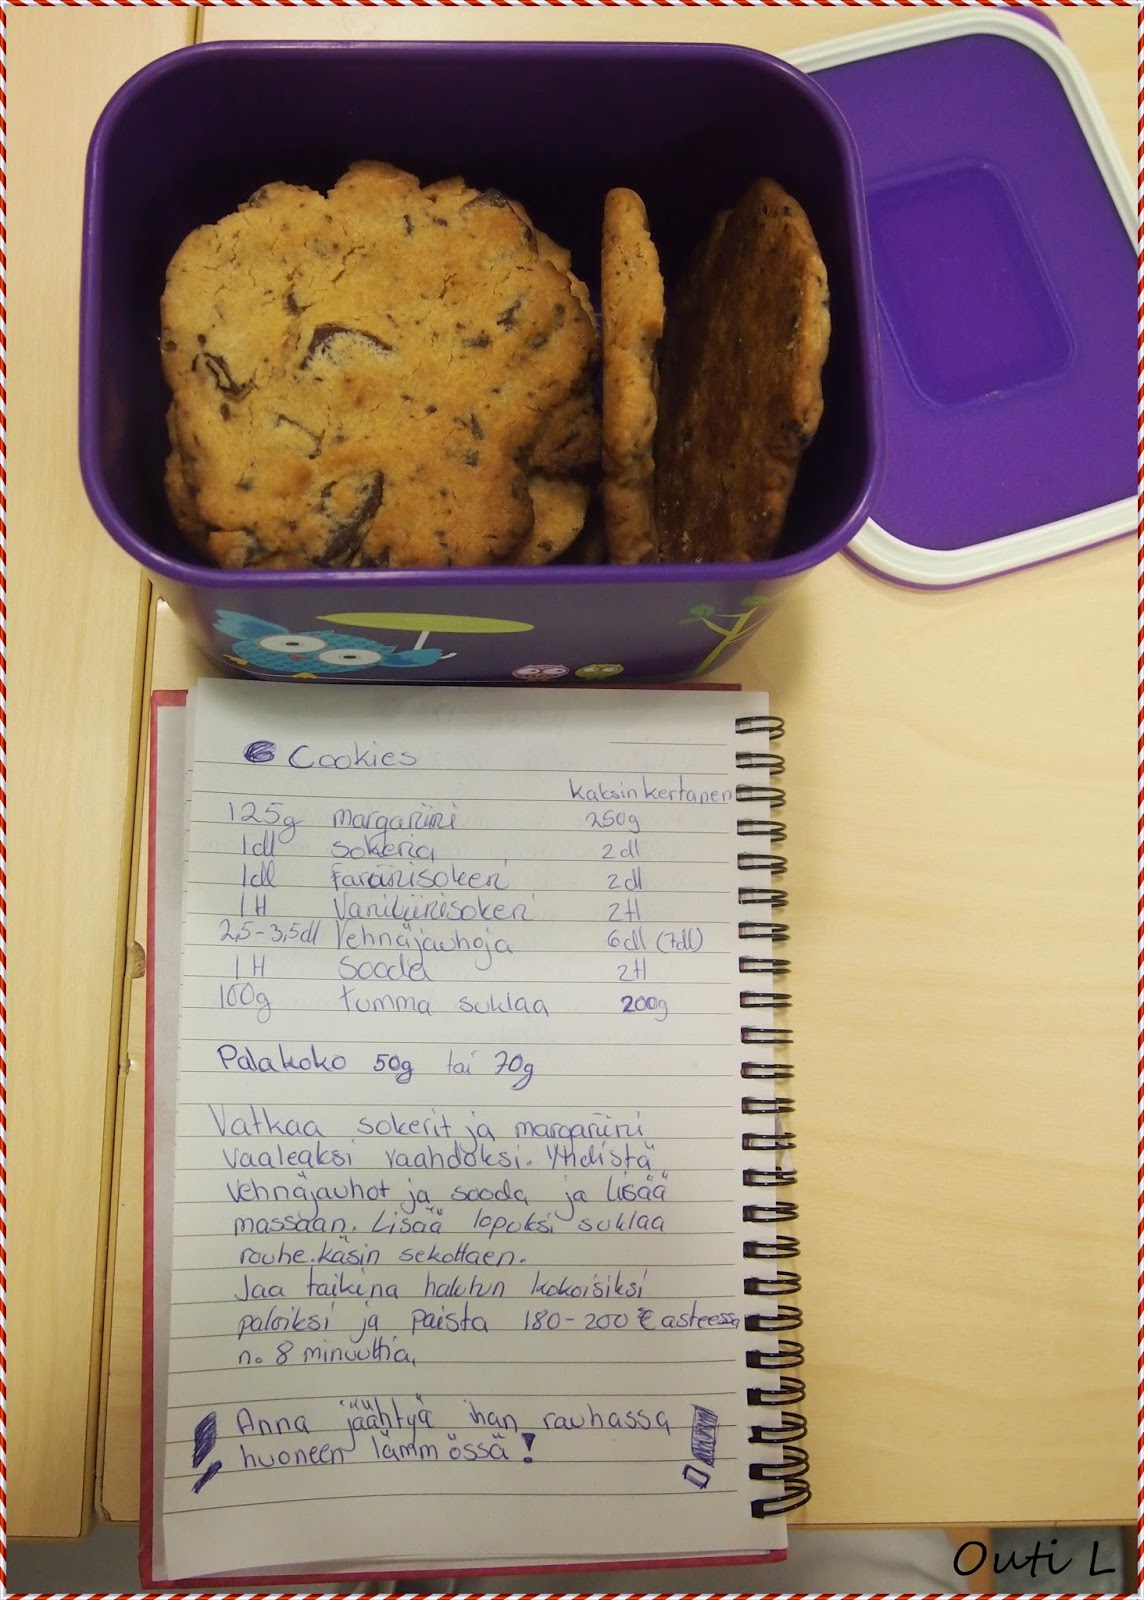 Cookies
kaksinkertanen
125g margariini 250g
1dl sokeria 2dl
1dl fariinisokeri 2dl
1tl Vaniliinisokeri 2tl
2,5-3,5dl Vehnäjauhoja 6dl (7dl)
1tl Sooda 2tl
100g tumma suklaa 200g
Palakoko 50g tai 70g
Vatkaa sokerit ja margariini
vaaleaksi vaahdoksi. Yhdistä
vehnäjauhot ja sooda ja lisää
massaan. Lisää lopuksi suklaa
rouhe.käsin sekottaen.
Jaa taikina halutun kokoisiksi
paloiksi ja paista 180-200 asteessa
n. 8 minuuttia.
Anna jäähtyä ihan rauhassa
huoneen lämmössä!
Outi L